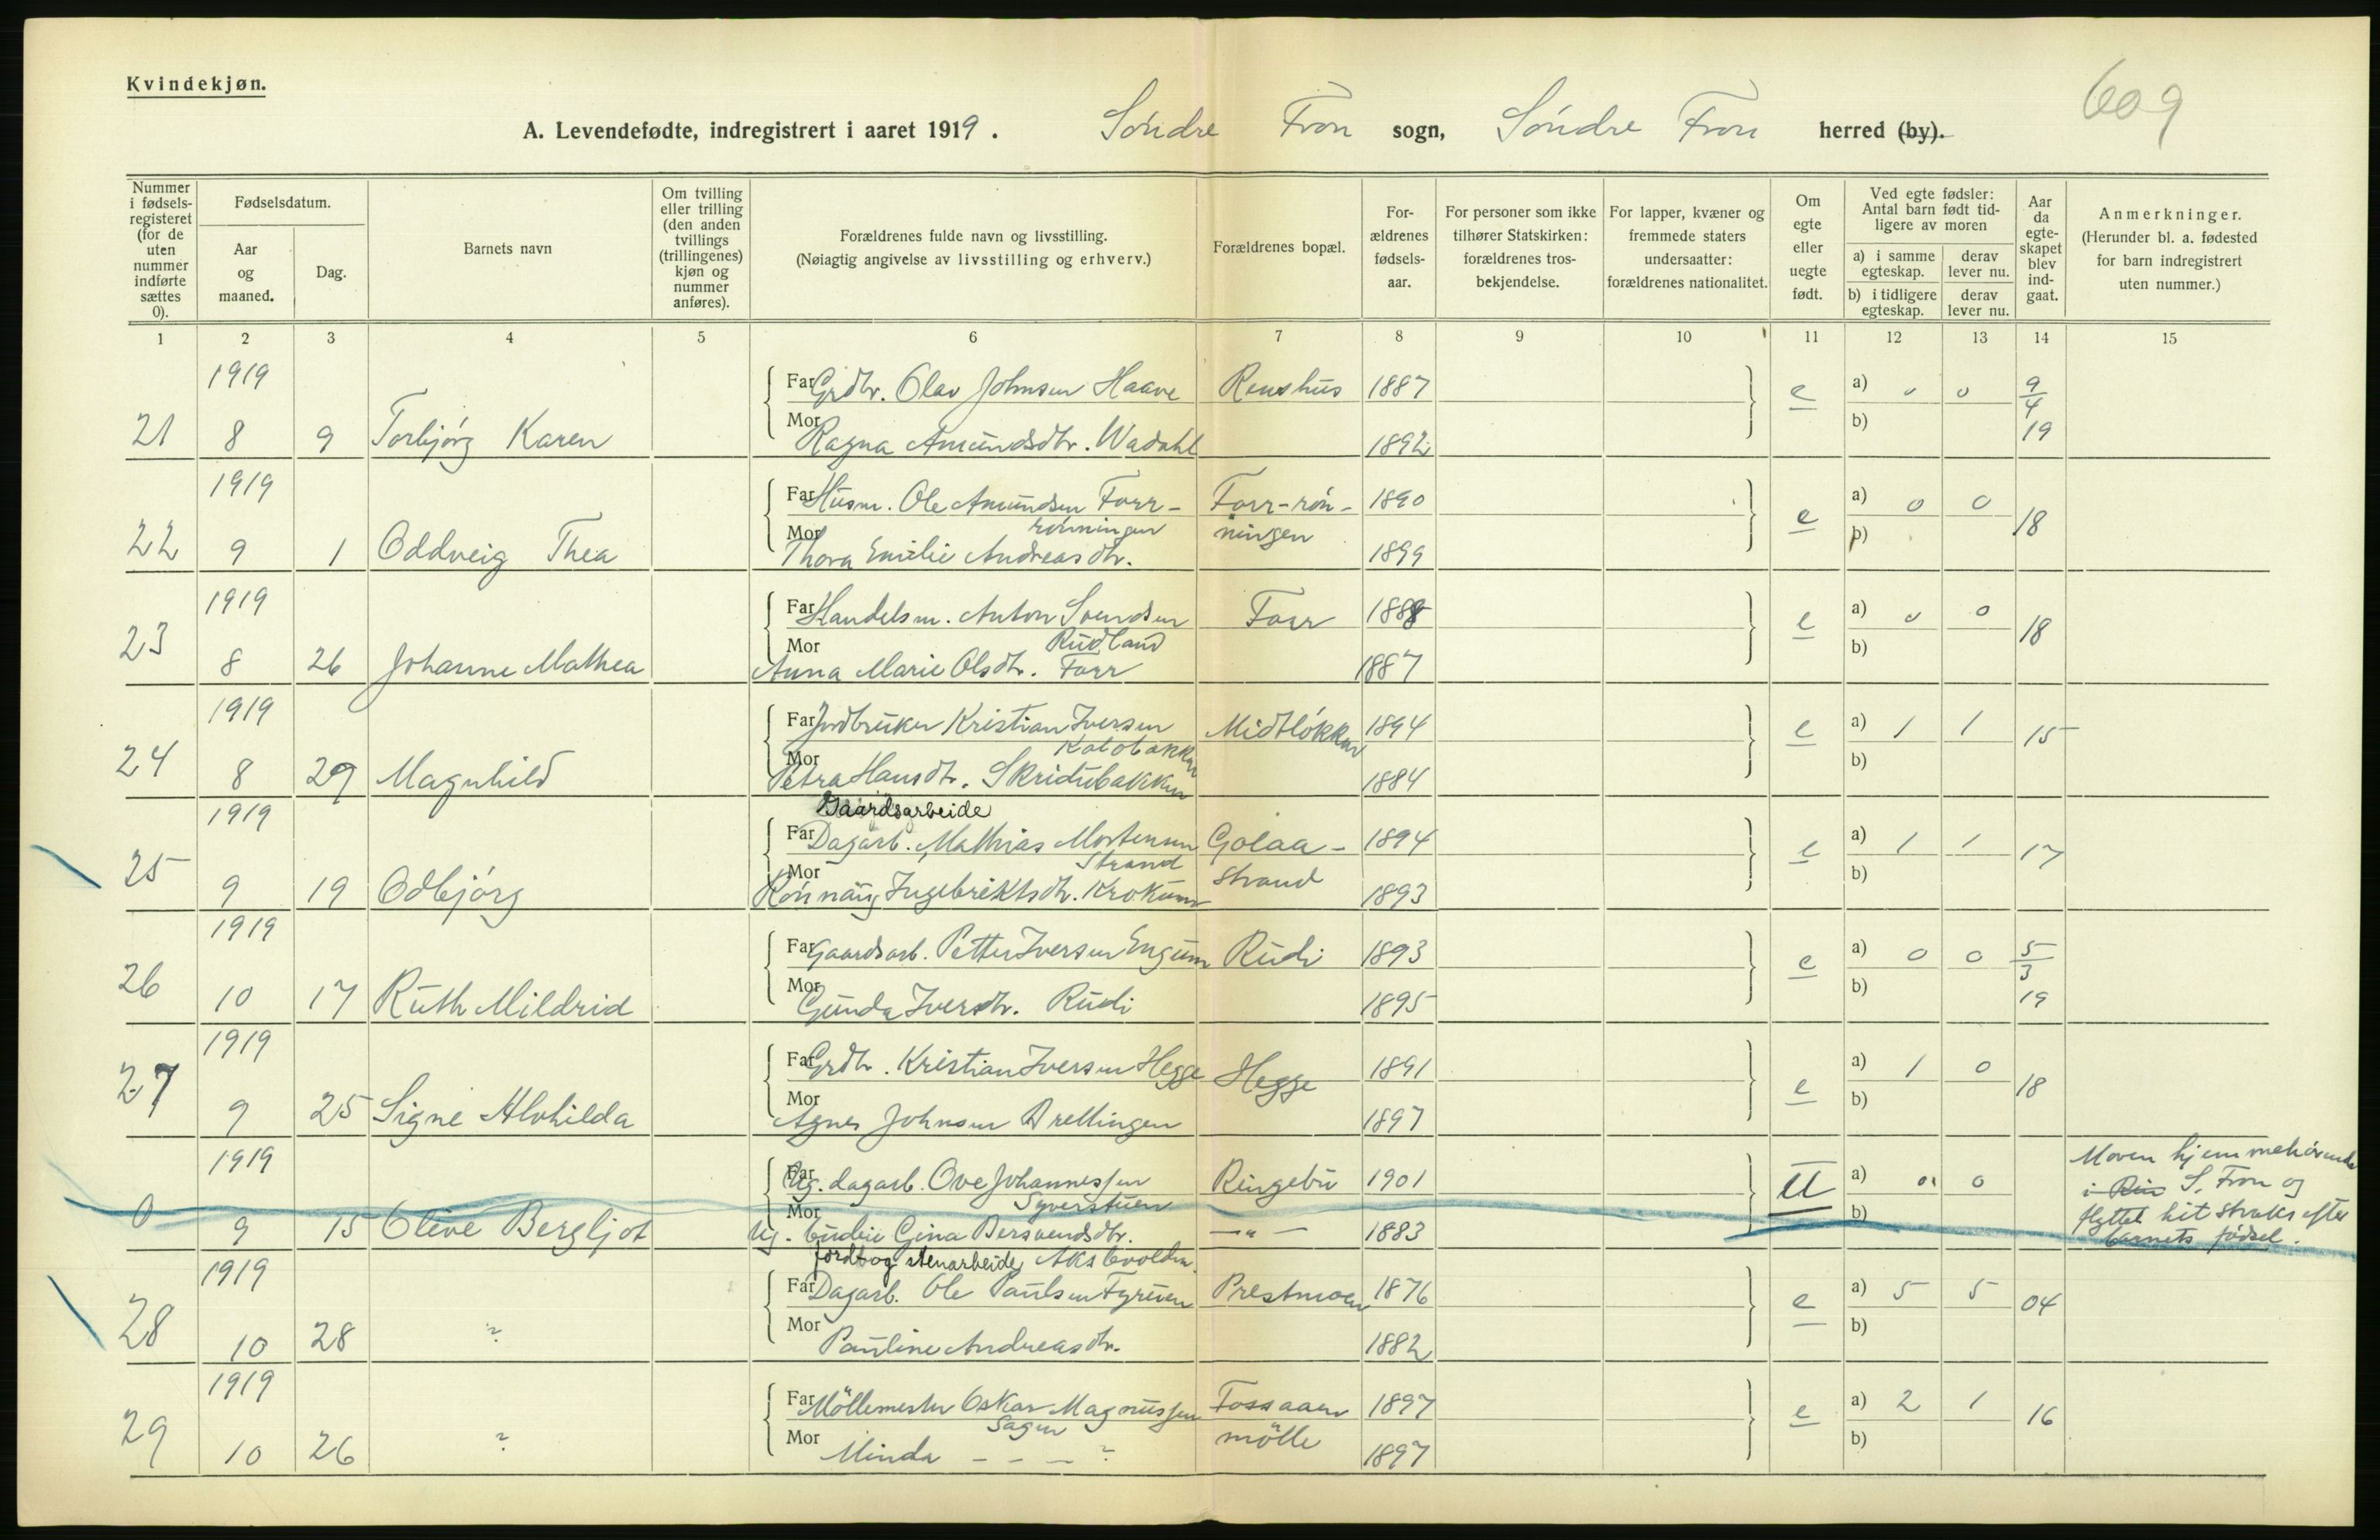 Kvindekjøn.
609
A. Levendefødte, indregistrert i aaret 1919. Söndre Fron sogn, Söndre Fron herred (by).
Nummer i fødselsregisteret (for de uten nummer indførte sættes 0).
Fødselsdatum.
Aar og maaned.
Dag.
Barnets navn
Om tvilling eller trilling (den anden tvillings (trillingenes) kjøn og nummer anføres).
Forældrenes fulde navn og livsstilling.
(Nøiagtig angivelse av livsstilling og erhverv.)
Forældrenes bopæl.
Forældrenes fødselsaar.
For personer som ikke tilhører Statskirken: forældrenes trosbekjendelse.
For lapper, kvæner og fremmede staters undersaatter: forældrenes nationalitet.
Om egte eller uegte født.
Ved egte fødsler: Antal barn født tidligere av moren
a) i samme egteskap.
derav lever nu.
b) i tidligere egteskap.
derav lever nu.
Aar da egteskapet blev indgaat.
Anmerkninger.
(Herunder bl. a. fødested for barn indregistrert uten nummer.)
1 2 3 4 5 6 7 8 9 10 11 12 13 14 15
1919 Far Grdbr. Olav Johnsen Haave Renshus 1887 e a) 0 0 9/4 19
21 8 9 Torbjörg Karen Mor Ragna Amundsdtr. Wadahl 1892 b)
1919 Far Husm. Ole Amundsen Forr- Forr-rön- 1890 e a) 0 0 18
rönningen ningen
22 9 1 Oddveig Thea Mor Thora Emilie Andreasdtr. 1899 b)
1919 Far Handelsm. Anton Svendsen Forr 1888 e a) 0 0 18
Rudland
23 8 26 Johanne Mathea Mor Anna Marie Olsdtr. Forr 1887 b)
1919 Far Jordbruker Kristian Iversen Midtlökken 1894 e a) 1 1 15
24 8 29 Magnhild Mor Petra Hansdtr. Skridubakken 1884 b)
Gaardsarbeide
1919 Far Dagarb. Mathias Mortensen Golaa- 1894 e a) 1 1 17
Strand strand
25 9 19 Odbjörg Mor Rönnaug Ingebriktsdtr. 1893 b)
1919 Far Gaardsarb. Petter Iversen Engum Rudi 1893 e a) 0 0 5/3 19
26 10 17 Ruth Mildrid Mor Gunda Iversdtr. Rudi 1895 b)
1919 Far Grdbr. Kristian Iversen Hegge Hegge 1891 e a) 1 0 18
27 9 25 Signe Alvhilda Mor Agnes Johnsen 1897 b)
1919 Far Ug. dagarb. Ove Johannessen Ringebu 1901 U a) 0 0 Moren hjemmehörende
Syverstuen i S. Fron og
0 9 15 Olive Bergljot Mor Ug. Gina 1883 b) flyttet hit straks efter
barnets födsel.
Jord og stenarbeide
1919 Far Dagarb. Ole Paulsen Prestmoen 1876 e a) 5 5 04
28 10 28 ? Mor Pauline Andreasdtr. 1882 b)
1919 Far Möllemester Oskar Magnussen Fossaaen 1897 e a) 2 1 16
mölle
29 10 26 ? Mor Minda - - - ? 1897 b)